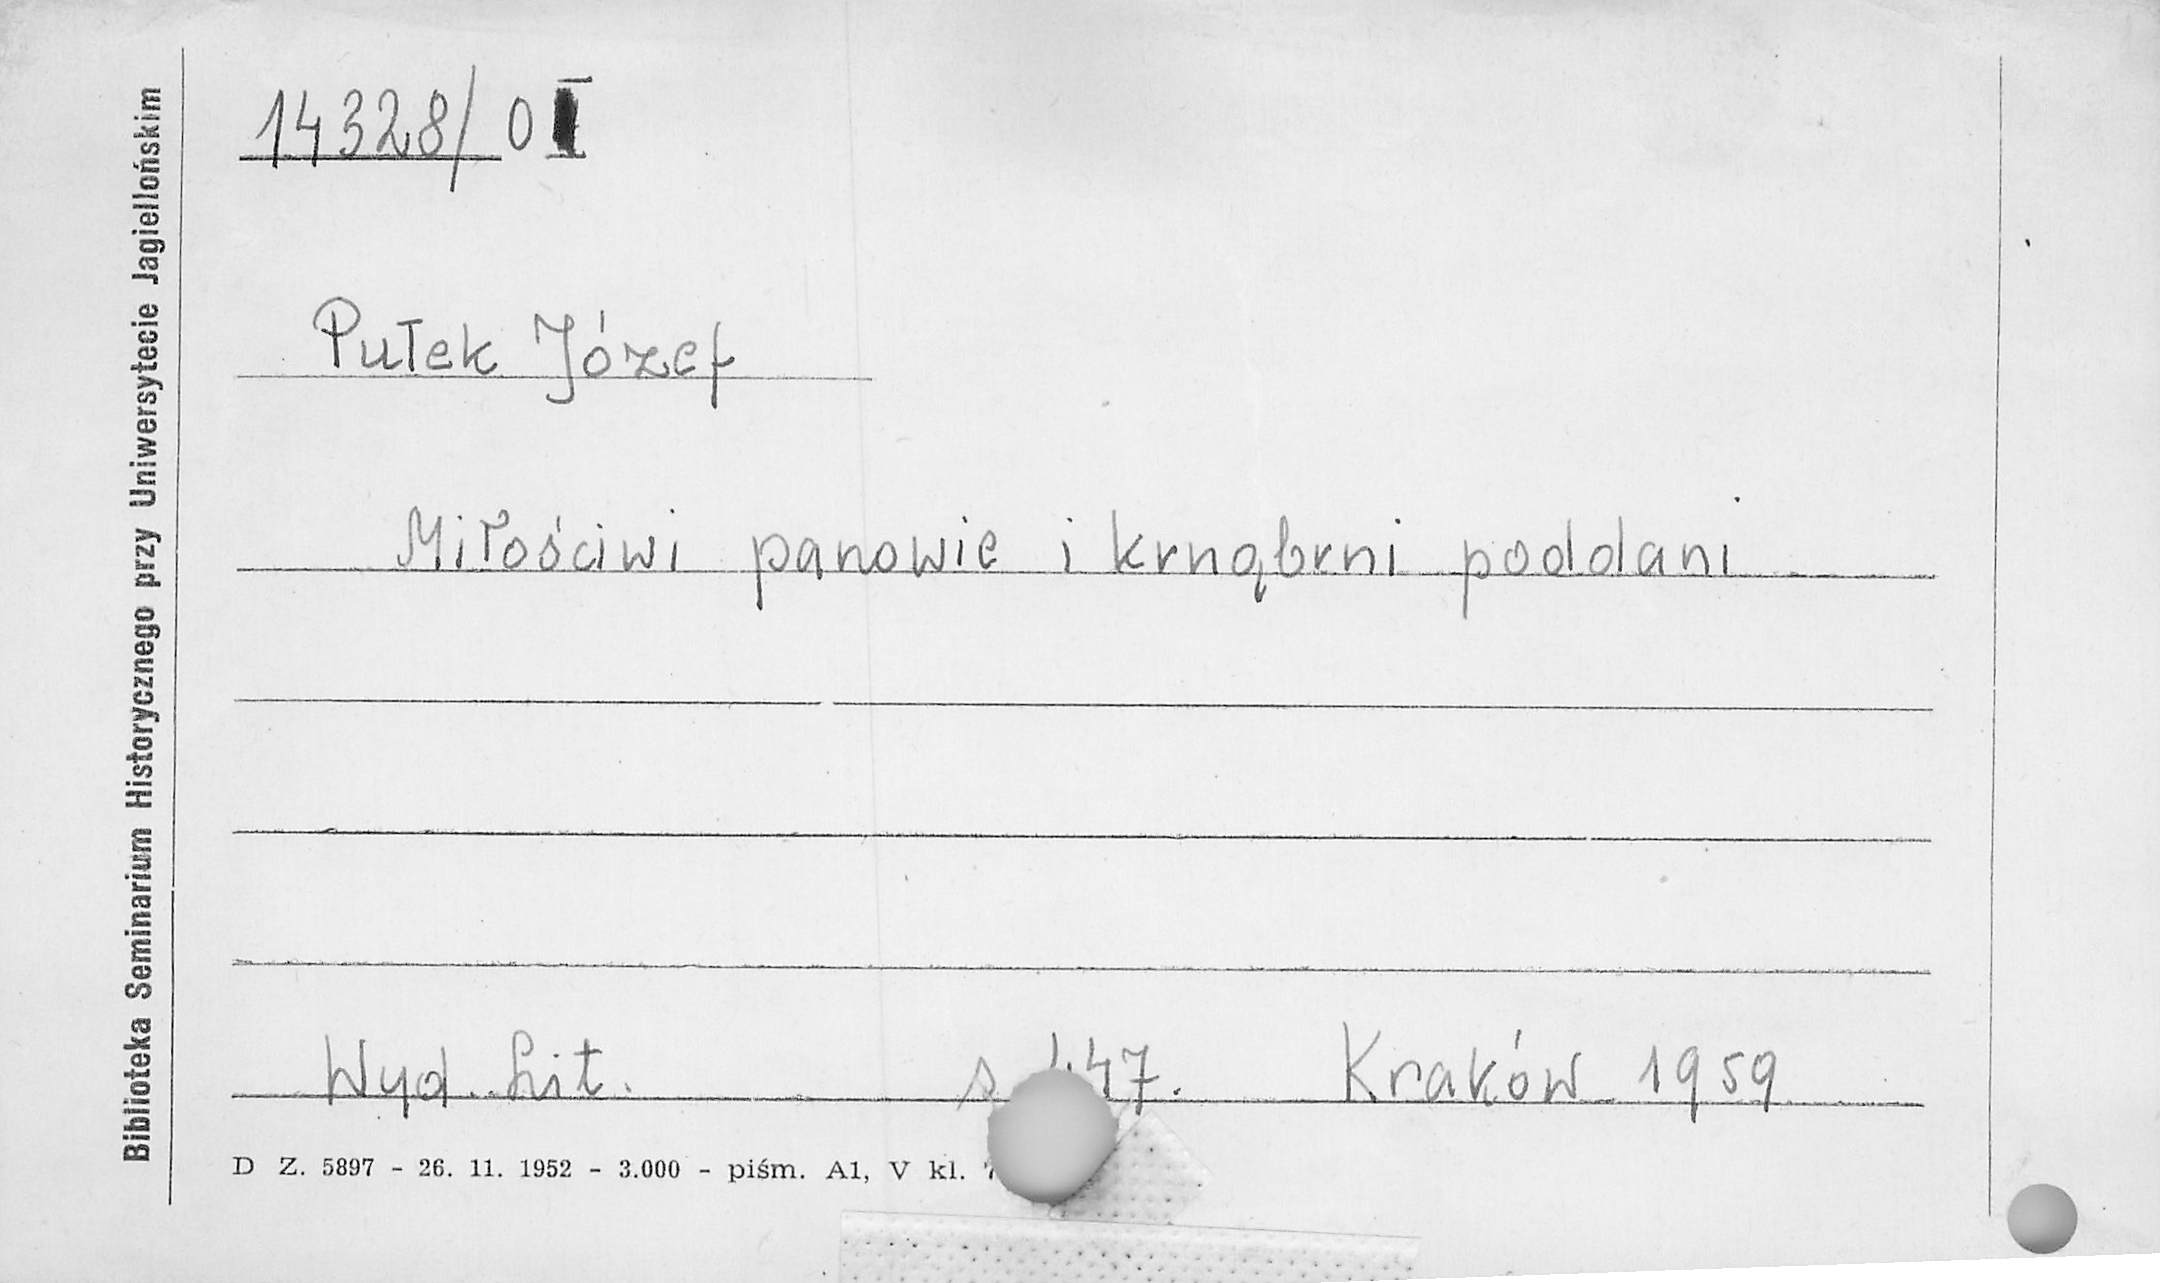 14328/0I
Putek Józef
Miłościwi panowie i krnąbrni poddani
Wyd. Lit. s. 447. Kraków 1959
D Z. 5897 - 26. 11. 1952 - 3.000 - piśm. A1, V kl.
Biblioteka Seminarium Historycznego przy Uniwersytecie Jagiellońskim